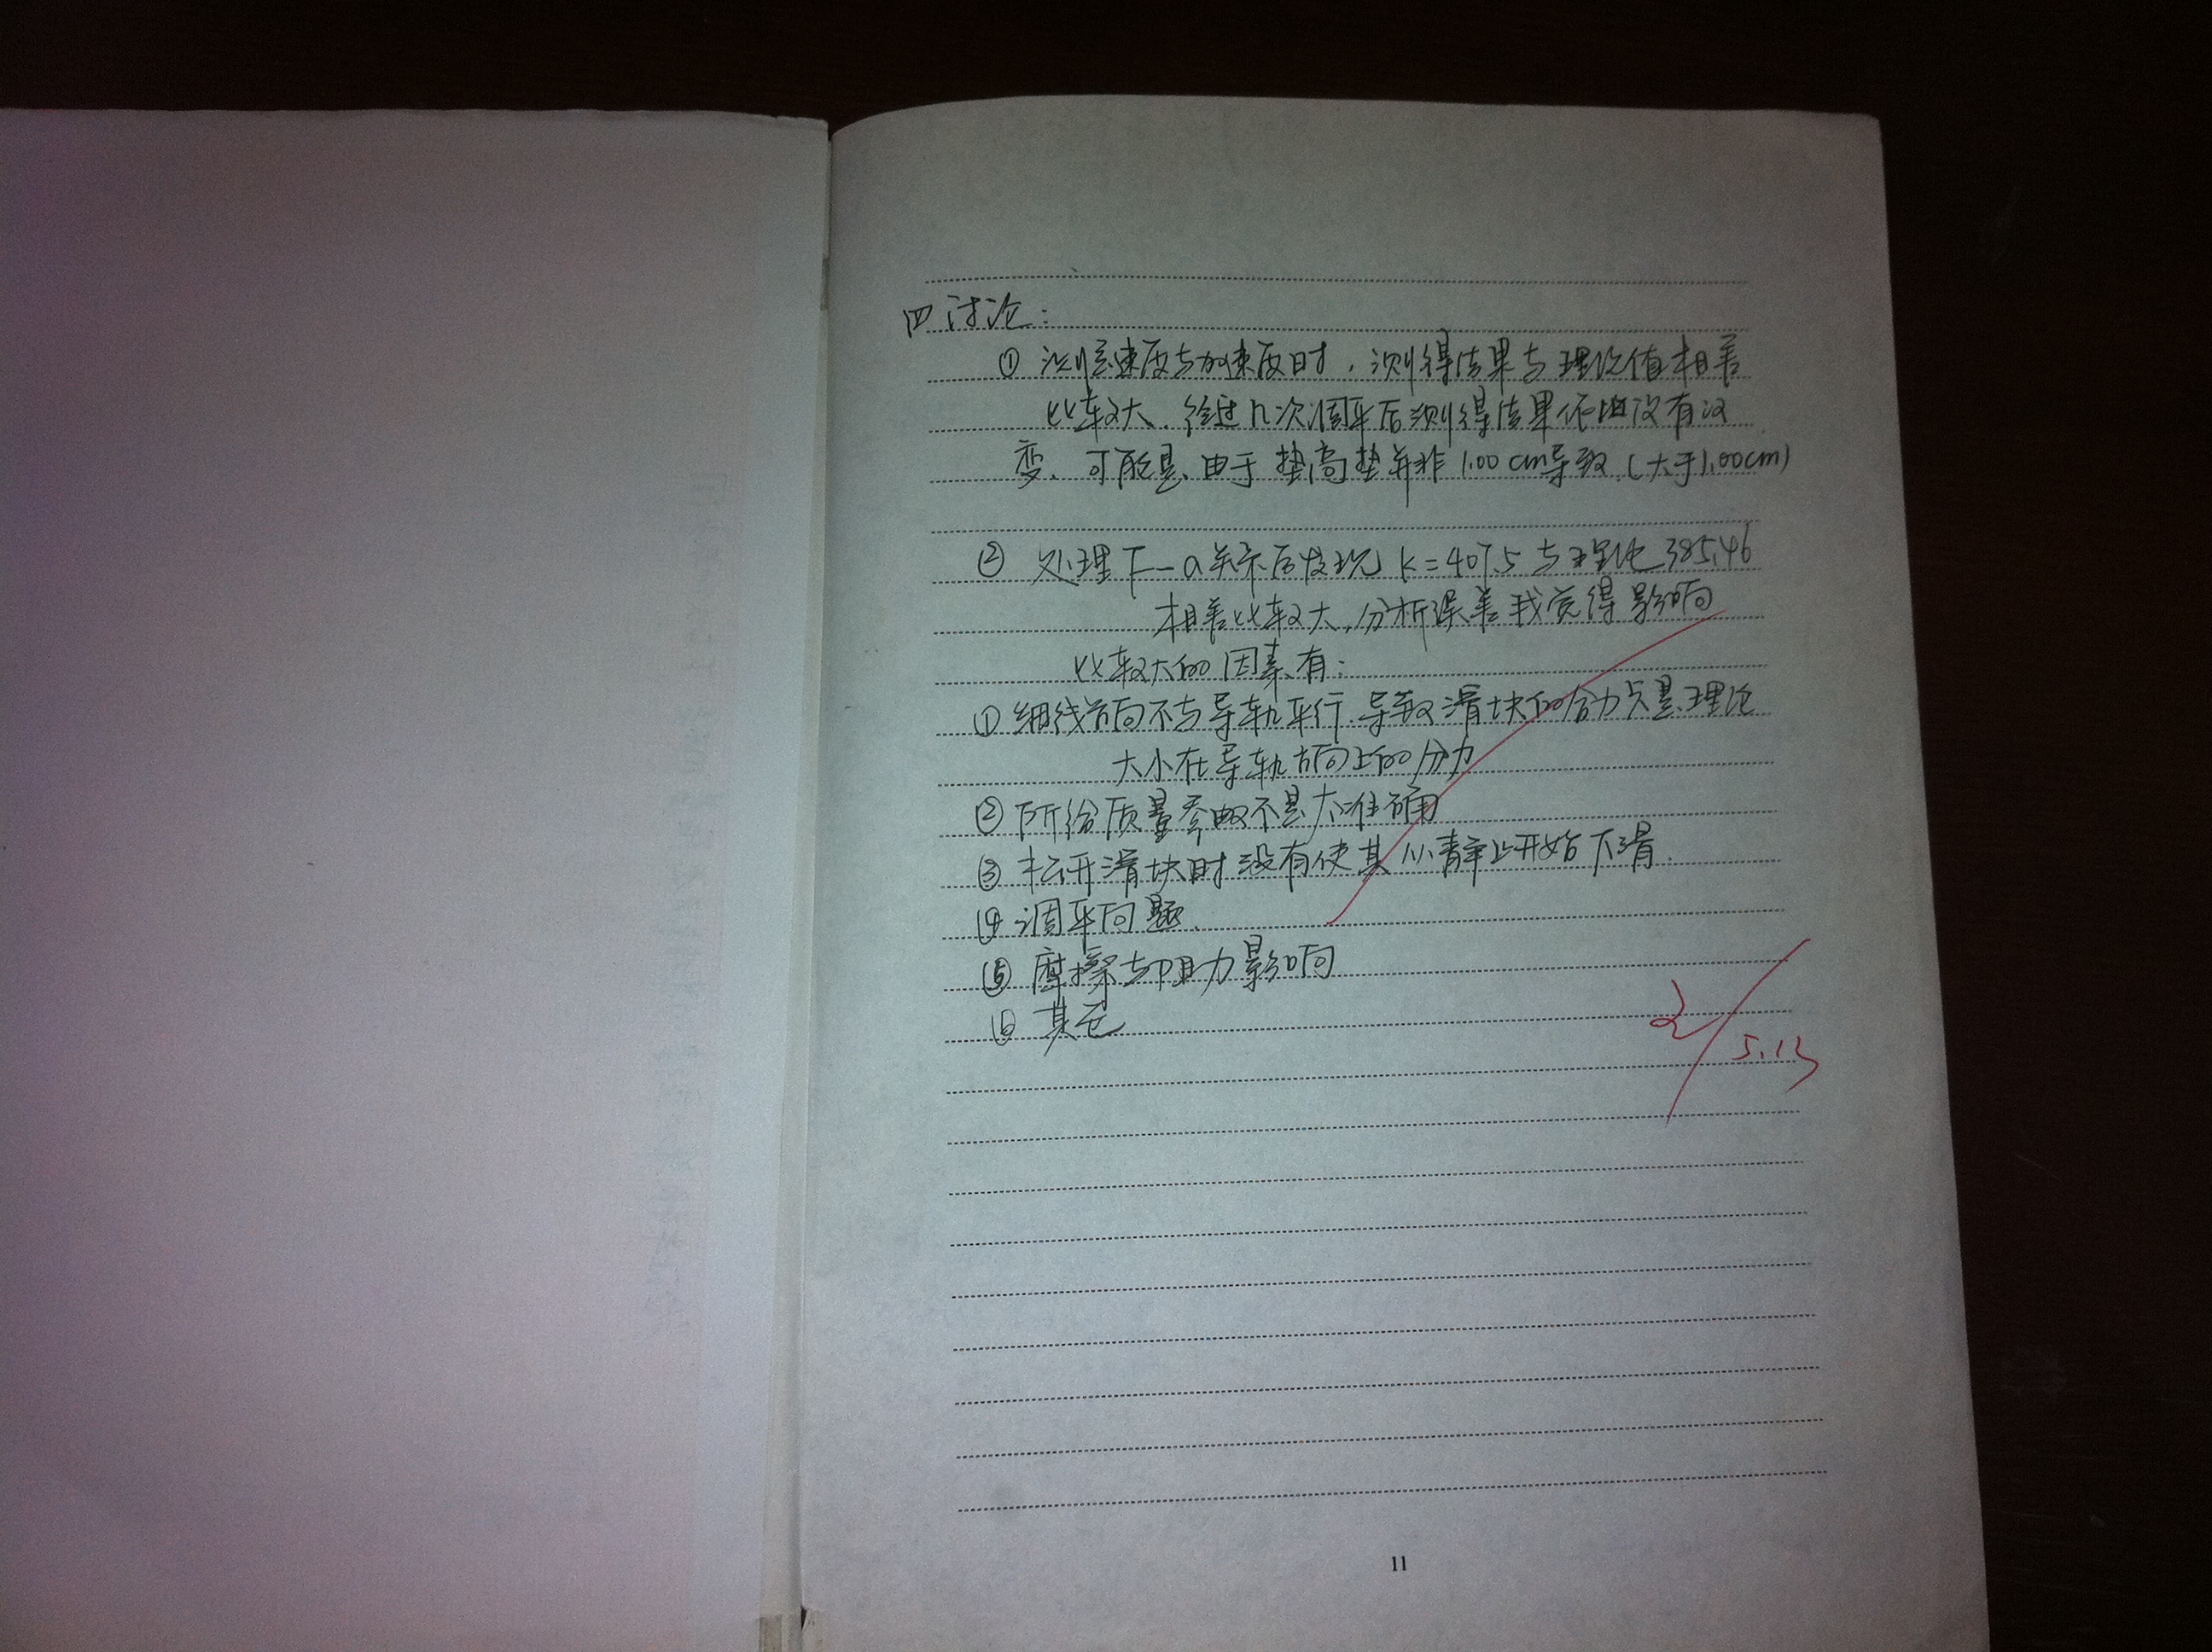 四 讨论:
① 测量速度与加速度时,测得结果与理论值相差
比较大,经过几次调平后测得结果依旧没有改
变,可能是由于垫高垫并非1.00cm导致(大于1.00cm)
② 处理F-a关系后发现k=407.5与理论385.46
相差比较大,分析误差我觉得影响
比较大的因素有:
①细线方向不与导轨平行,导致滑块的合力只是理论
大小在导轨方向上的分力
②所给质量参数不是太准确
③松开滑块时没有使其从静止开始下滑.
④调平问题.
⑤摩擦与阻力影响
⑥其它
2/5.13
11